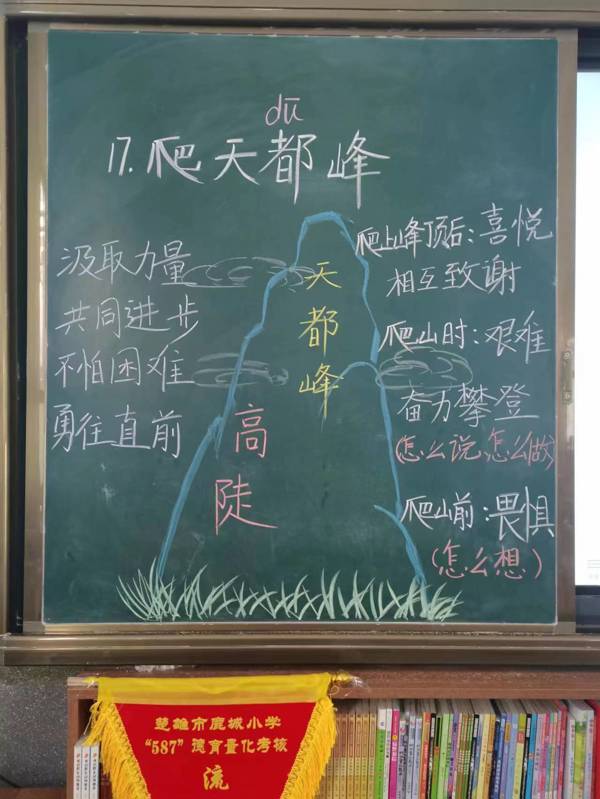 dū
17.爬天都峰
汲取力量
共同进步
不怕困难
勇往直前
天都峰
高陡
爬上峰顶后:喜悦
相互致谢
爬山时:艰难
奋力攀登
(怎么说、怎么做)
爬山前:畏惧
(怎么想)
楚雄市鹿城小学
“587”德育量化考核
流